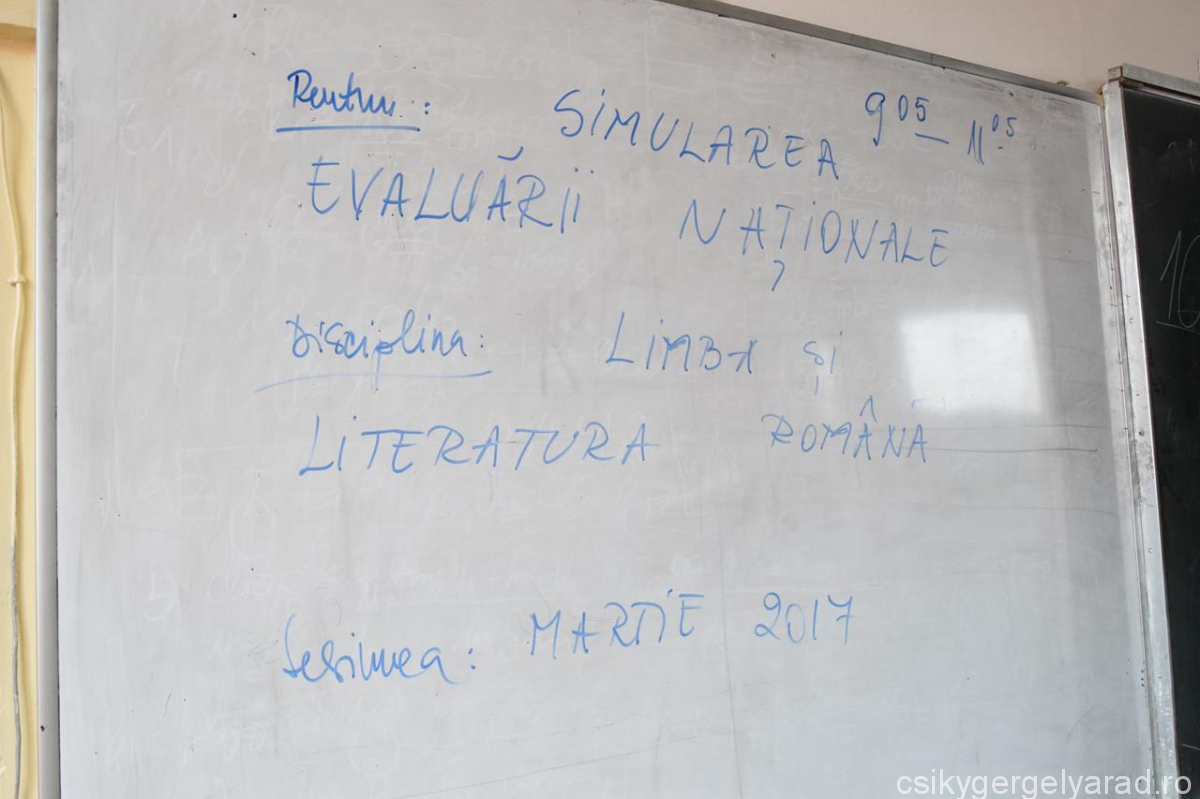 Pentru: SIMULAREA 9 05 – 11 05
EVALUĂRII NAȚIONALE
Disciplina: LIMBA și
LITERATURA ROMÂNĂ
Sesiunea: MARTIE 2017
10
csikygergelyarad.ro